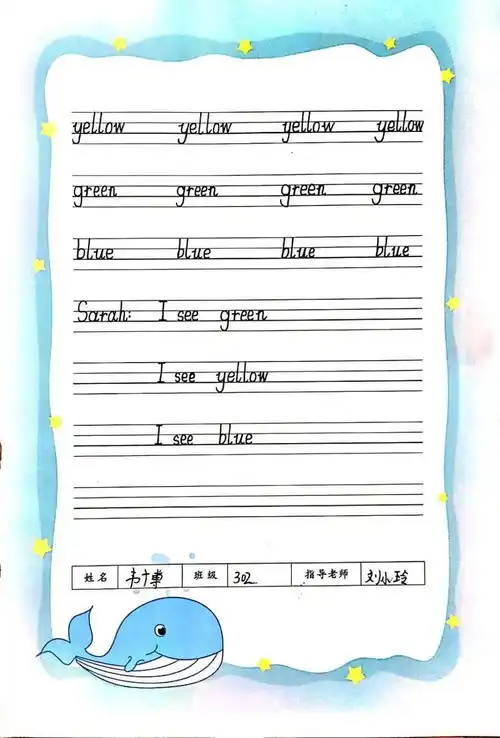 yellow yellow yellow yellow
green green green green
blue blue blue blue
Sarah: I see green
I see yellow
I see blue
姓名 韦十 班级 302 指导老师 刘小玲